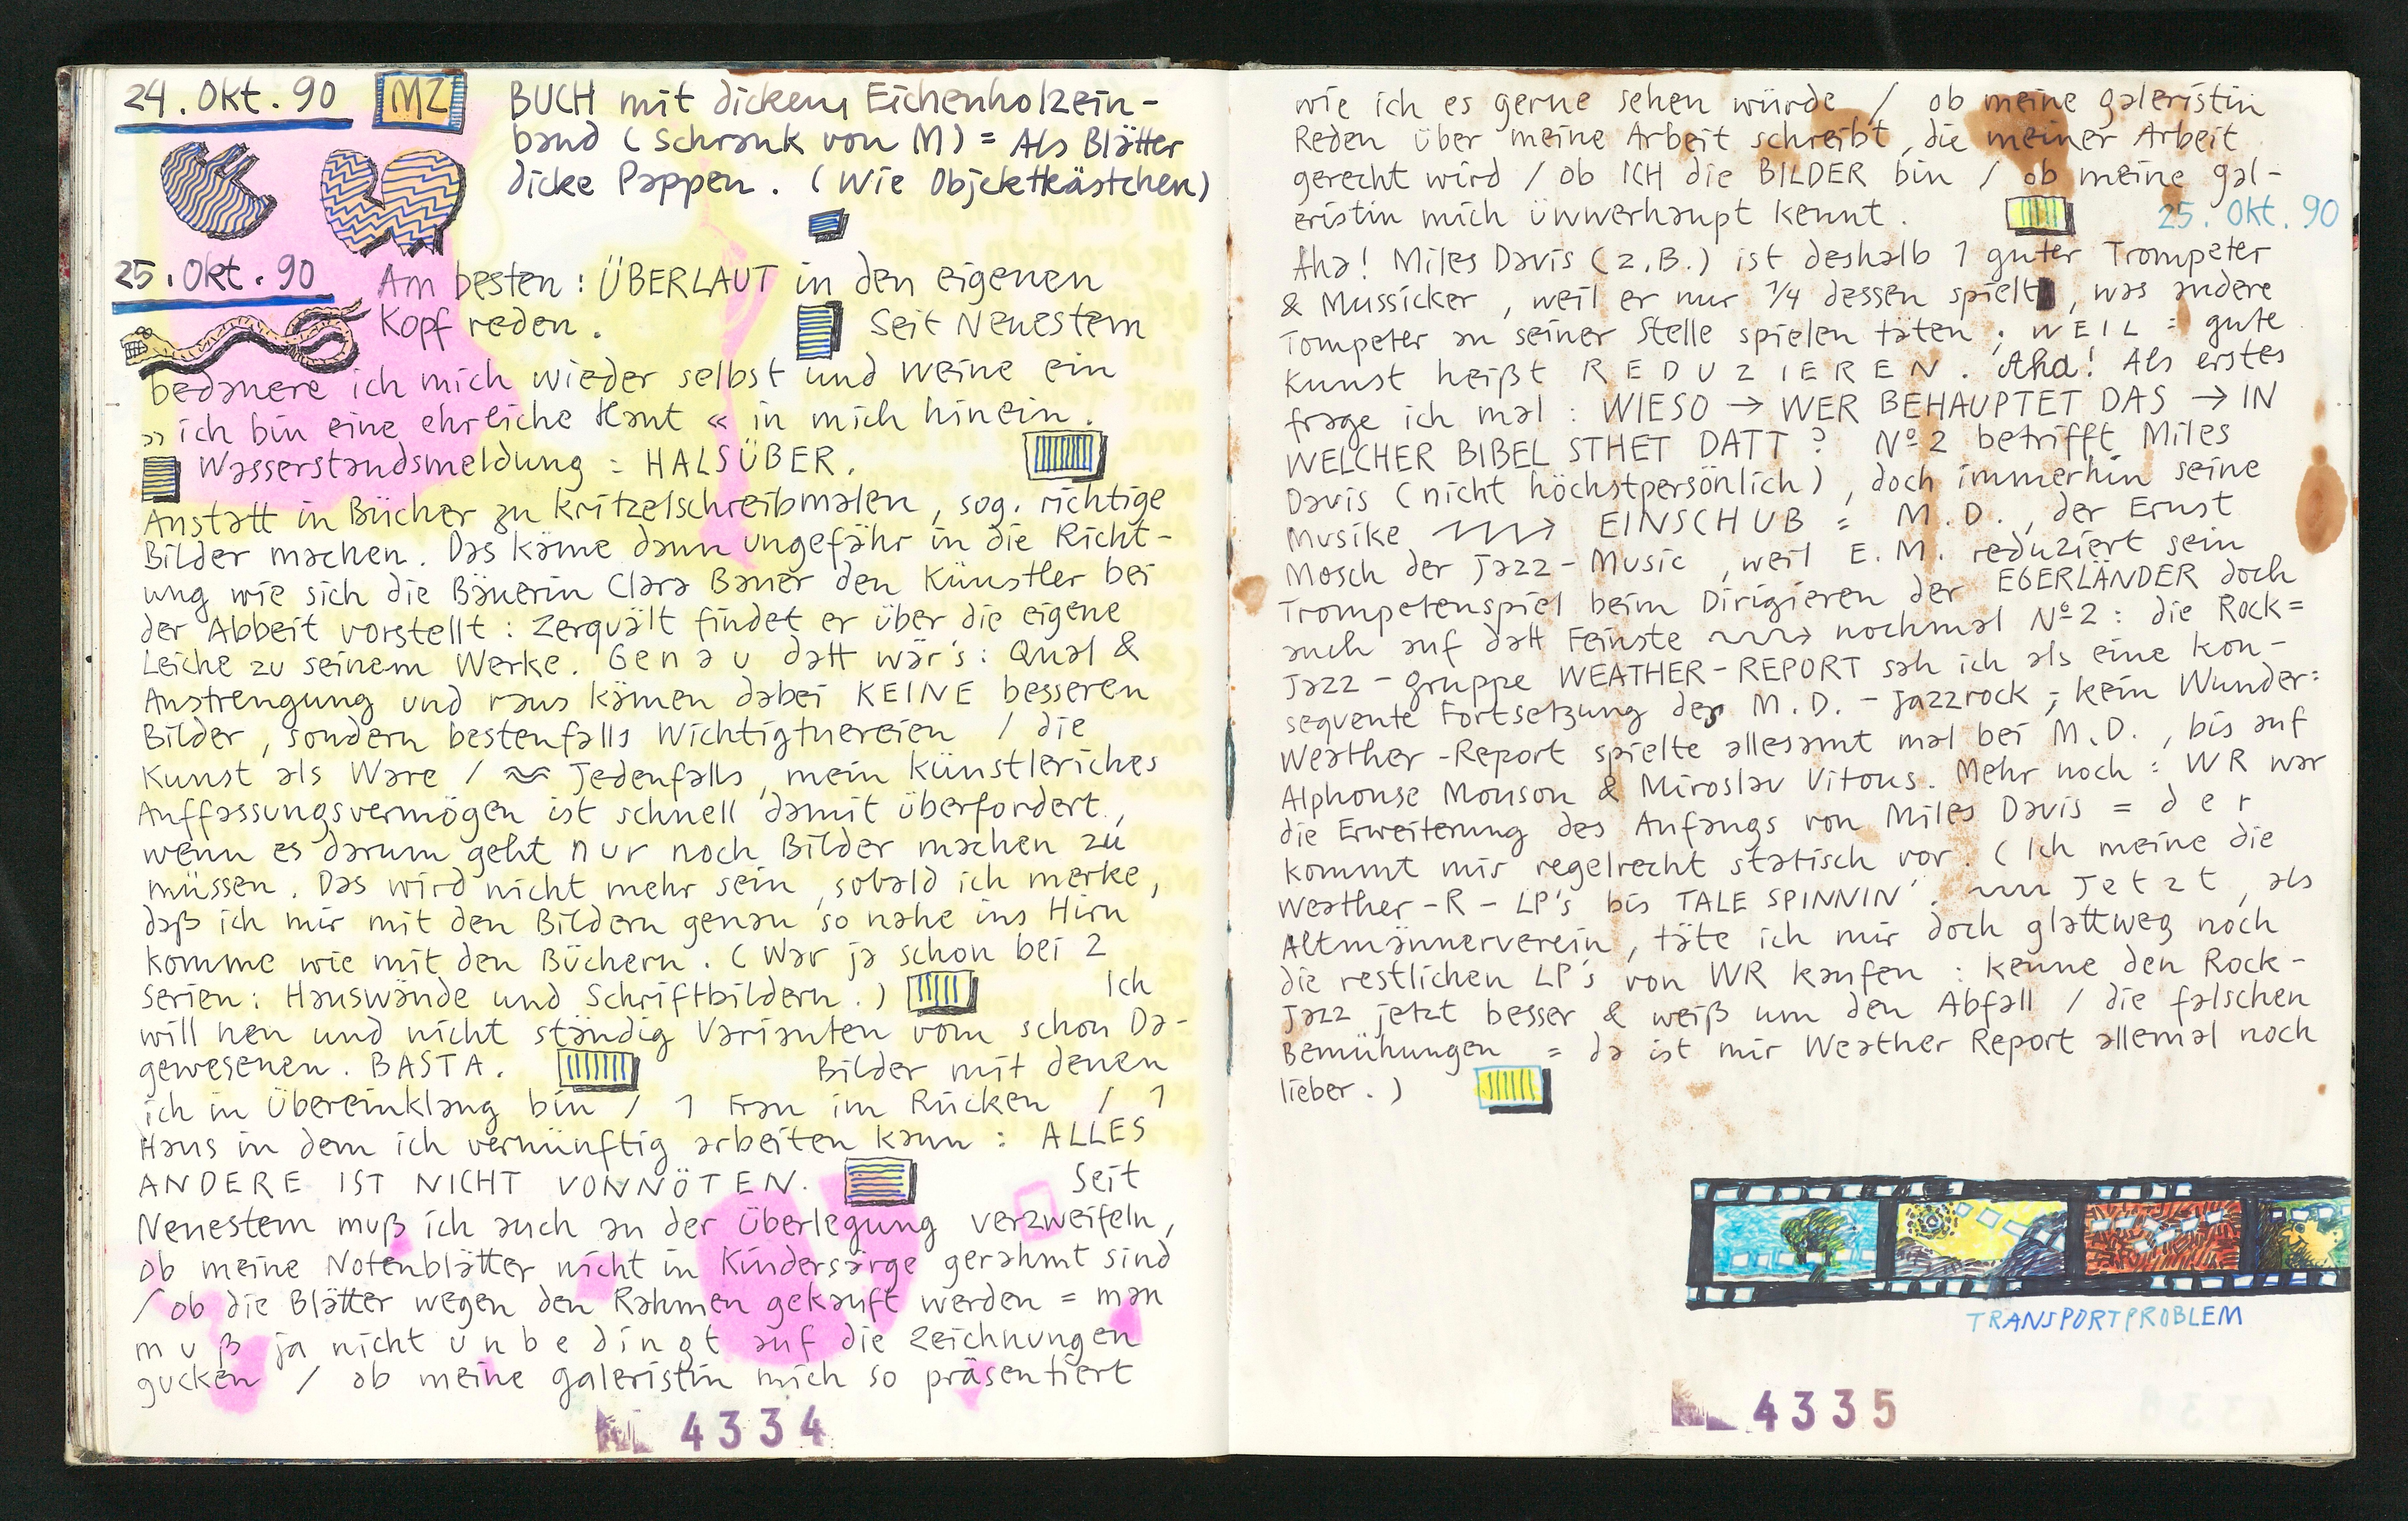 24. Okt. 90 MZ BUCH mit dickem Eichenholzein-
band (Schrank von M) = Als Blätter
dicke Pappen. (Wie Objektkästchen)
25. Okt. 90 Am besten: ÜBERLAUT in den eigenen
Kopf reden. Seit Neuestem
bedauere ich mich wieder selbst und weine ein
» ich bin eine ehrliche Haut « in mich hinein.
Wasserstandsmeldung = HALSÜBER.
Anstatt in Bücher zu kritzelschreibmalen, sog. richtige
Bilder machen. Das käme dann ungefähr in die Richt-
ung wie sich die Bäuerin Clara Bauer den Künstler bei
der Abbeit vorstellt: Zerquält findet er über die eigene
Leiche zu seinem Werke. Genau datt wär's: Qual &
Anstrengung und raus kämen dabei KEINE besseren
Bilder, sondern bestenfalls Wichtigtuereien / die
Kunst als Ware / Jedenfalls, mein künstleriches
Auffassungsvermögen ist schnell damit überfordert,
wenn es darum geht nur noch Bilder machen zu
müssen. Das wird nicht mehr sein, sobald ich merke,
daß ich mir mit den Bildern genau so nahe ins Hirn
komme wie mit den Büchern. (War ja schon bei 2
Serien: Hauswände und Schriftbildern.) Ich
will neu und nicht ständig Varianten vom schon Da-
gewesenen. BASTA. Bilder mit denen
ich in Übereinklang bin / 1 Frau im Rücken / 1
Haus in dem ich vernünftig arbeiten kann: ALLES
ANDERE IST NICHT VONNÖTEN. Seit
Neuestem muß ich auch an der Überlegung verzweifeln,
ob meine Notenblätter nicht in Kindersärge gerahmt sind
/ ob die Blätter wegen den Rahmen gekauft werden = man
muß ja nicht unbedingt auf die Zeichnungen
gucken / ob meine Galeristin mich so präsentiert
4334
wie ich es gerne sehen würde / ob meine Galeristin
Reden über meine Arbeit schreibt, die meiner Arbeit
gerecht wird / ob ICH die BILDER bin / ob meine Gal-
eristin mich üwwerhaupt kennt. 25. Okt. 90
Aha! Miles Davis (z.B.) ist deshalb 1 guter Trompeter
& Mussicker, weil er nur 1/4 dessen spielt, was andere
Tompeter an seiner Stelle spielen täten; WEIL = gute
Kunst heißt REDUZIEREN. Aha! Als erstes
frage ich mal: WIESO → WER BEHAUPTET DAS → IN
WELCHER BIBEL STHET DATT? Nº 2 betrifft Miles
Davis (nicht höchstpersönlich), doch immerhin seine
Musike → EINSCHUB = M.D., der Ernst
Mosch der Jazz-Music, weil E.M. reduziert sein
Trompetenspiel beim Dirigieren der EGERLÄNDER doch
auch auf datt Feinste → nochmal Nº 2: die Rock=
Jazz-gruppe WEATHER-REPORT sah ich als eine kon-
sequente Fortsetzung des M.D.-Jazzrock; kein Wunder:
Weather-Report spielte allesamt mal bei M.D., bis auf
Alphonse Mouson & Miroslav Vitous. Mehr noch: WR war
die Erweiterung des Anfangs von Miles Davis = der
kommt mir regelrecht statisch vor. (Ich meine die
Weather-R-LP's bis TALE SPINNIN'. Jetzt, als
Altmännerverein, täte ich mir doch glattweg noch
die restlichen LP's von WR kaufen: kenne den Rock-
Jazz jetzt besser & weiß um den Abfall / die falschen
Bemühungen = da ist mir Weather Report allemal noch
lieber.)
TRANSPORTPROBLEM
4335